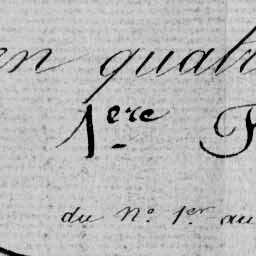 en quatr
1ere P
du No. 1er au